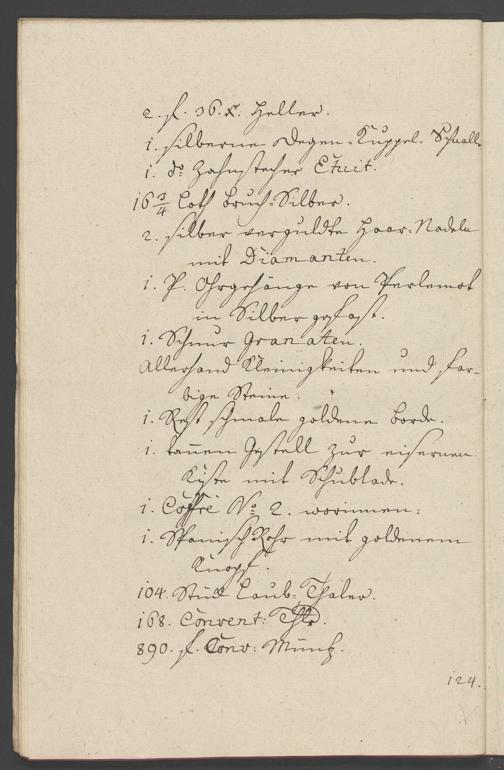 2. f. 36. x. Heller.
1. silberne Degen-Kuppel-Schnalle
1. do Zahnstecher Etuit.
16 3/4 Loth Bruch-Silber.
2. silber verguldte Haar-Nadeln
mit Diamanten.
1. P. Ohrgehänge von Perlemot
in Silber gefast.
1. Schnur Granaten.
Allerhand Kleinigkeiten und far-
bige Steine.
1. Rest schmale goldene Borde.
1. tannen Gestell zur eisernen
Kiste mit Schublade.
1. Coffre No 2. worinnen:
1. Spanisch Rohr mit goldenem
Knopf.
104. Stück Laub-Thaler.
168. Convent: Thlr.
890. f. Conv: Müntz.
124.